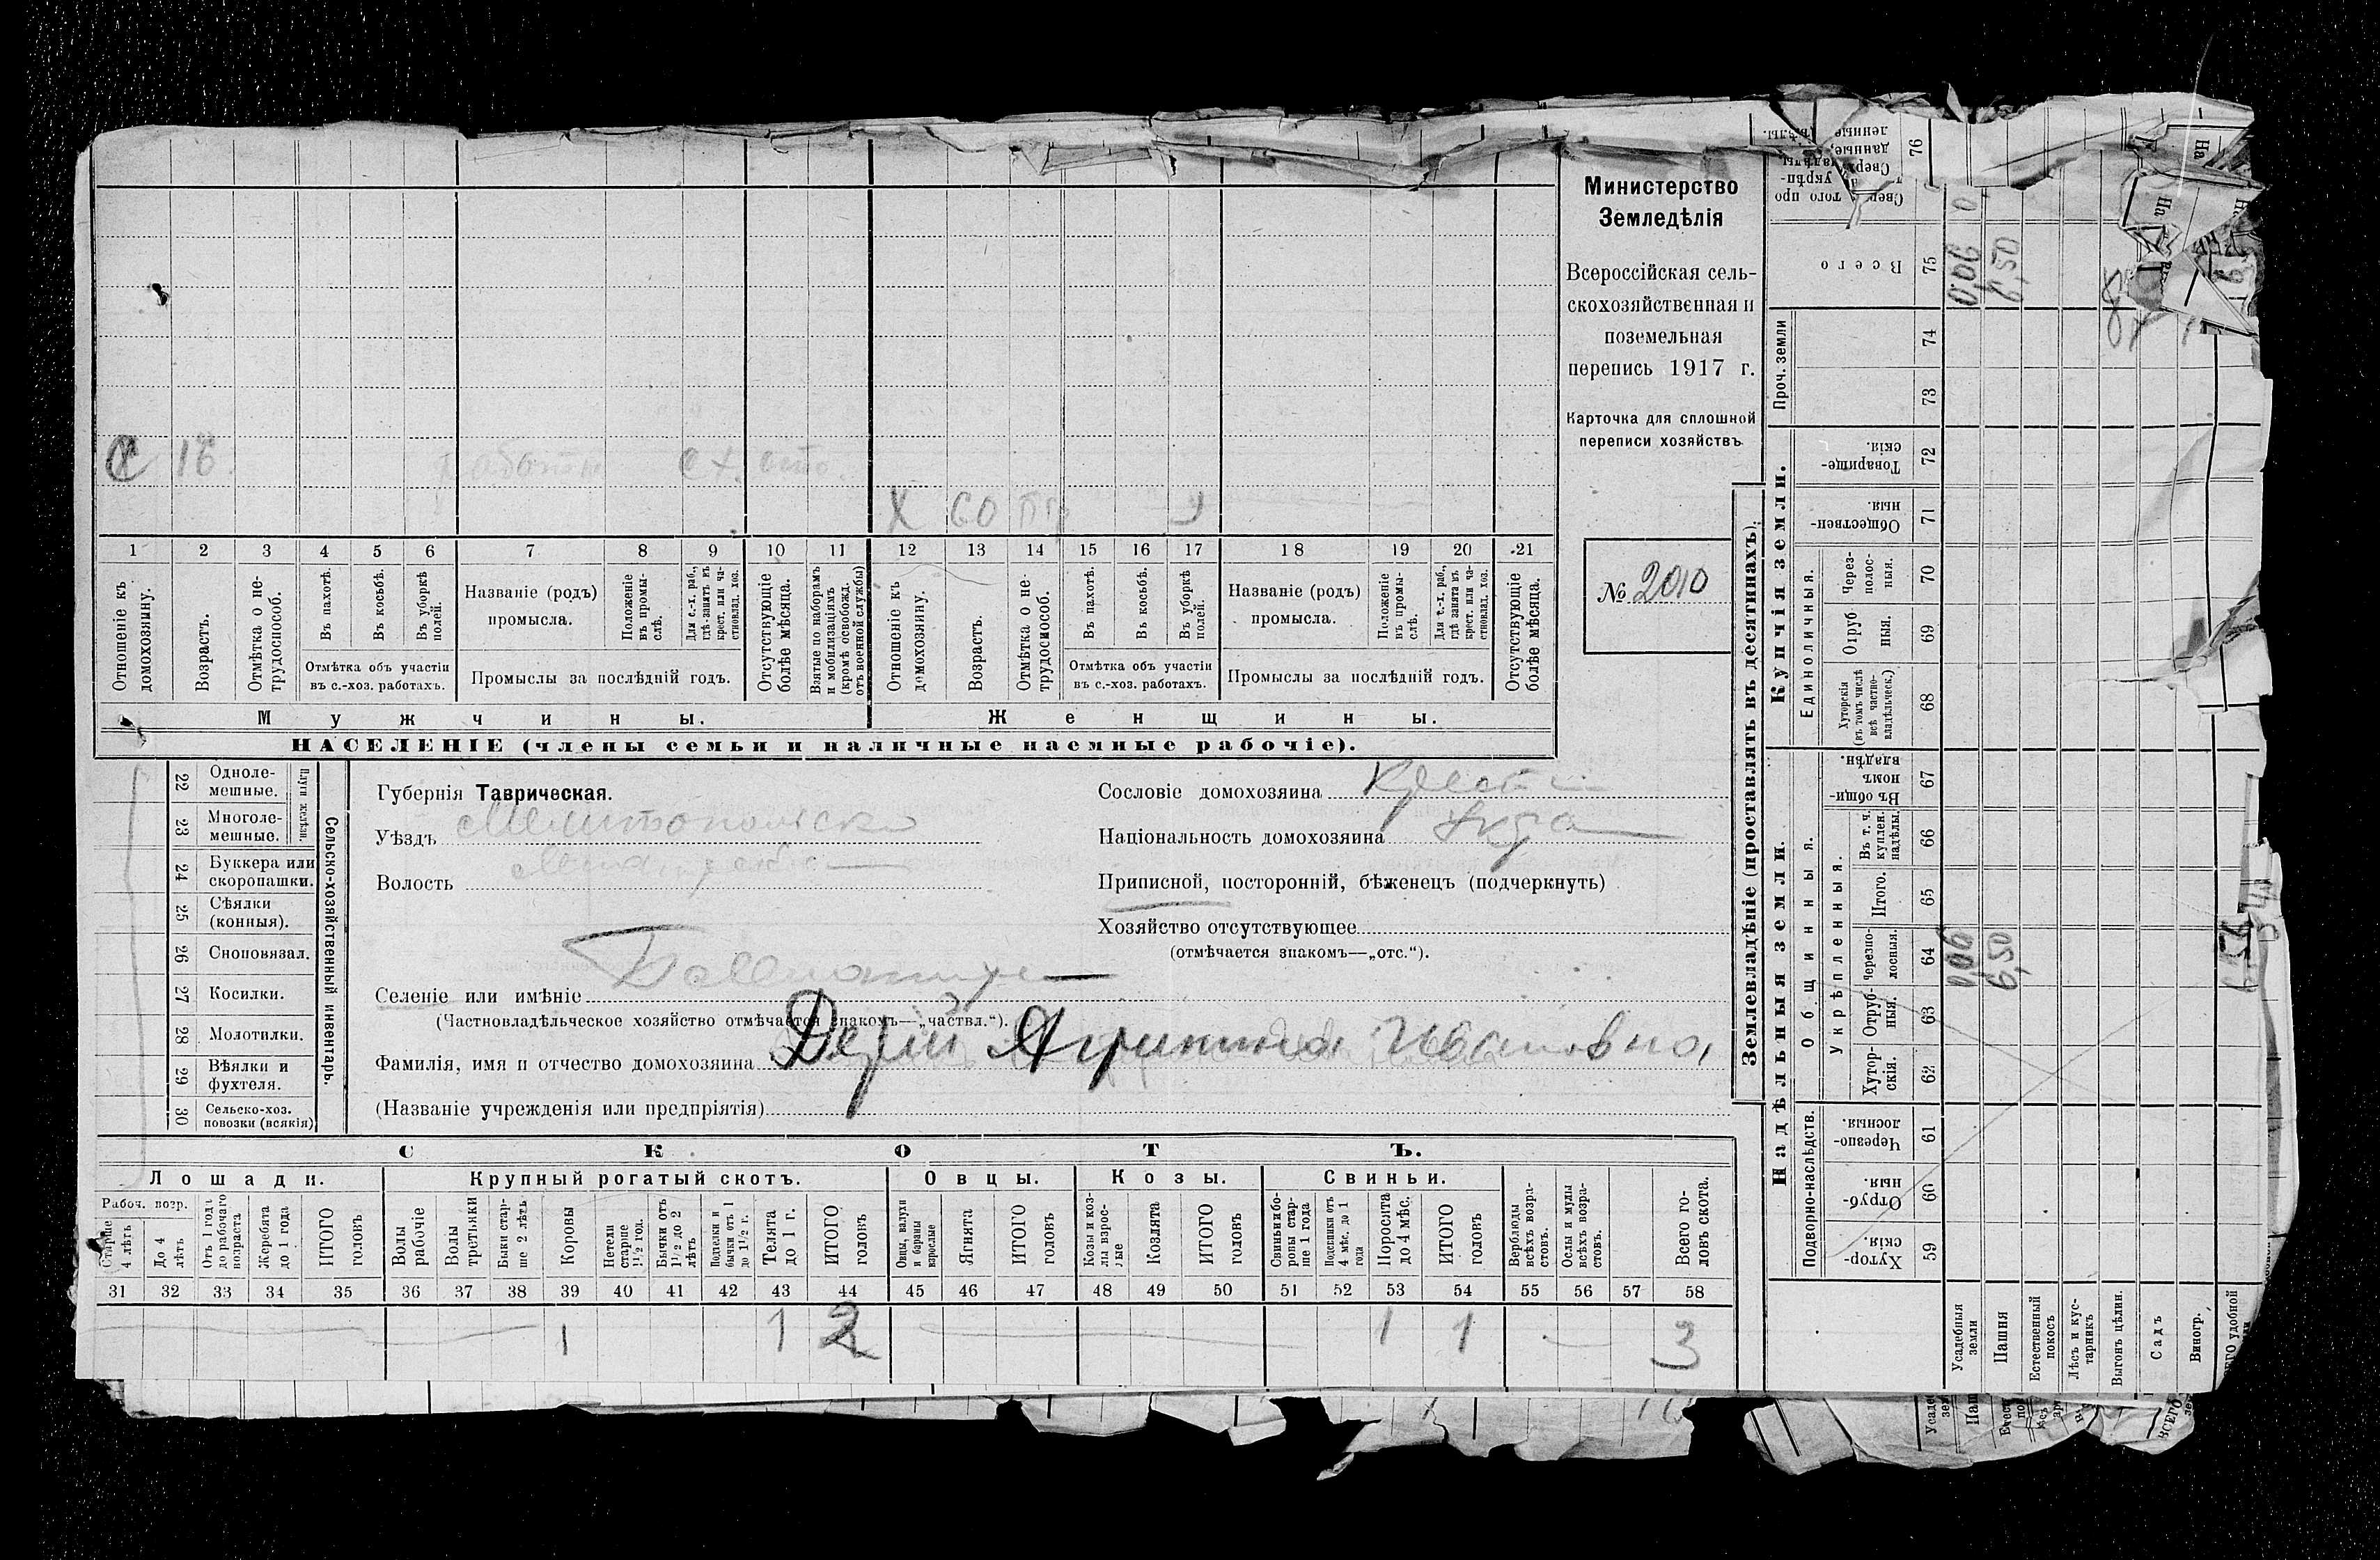 Министерство
Земледѣлія
Всероссійская сель-
скохозяйственная и
поземельная
перепись 1917 г.
Карточка для сплошной
переписи хозяйствъ
№ 2010
С 16
Х 60
1 2 3 4 5 6 7 8 9 10 11 12 13 14 15 16 17 18 19 20 21
Отношеніе къ домохозяину.
Возрастъ.
Отмѣтка о не-трудоспособ.
Въ пахотѣ.
Въ косьбѣ.
Въ уборкѣ полей.
Отмѣтка объ участіи
въ с.-хоз. работахъ.
Названіе (родъ)
промысла.
Положеніе въ промы-слѣ.
Для с.-х. раб., гдѣ-занятъ въ крест. или ча-стновлад. хоз.
Промыслы за послѣдній годъ.
Отсутствующіе болѣе мѣсяца.
Взятые по наборамъ и мобилизаціямъ (кромѣ освобожд. отъ военной службы)
Отношеніе къ домохозяину.
Возрастъ.
Отмѣтка о не-трудоспособ.
Въ пахотѣ.
Въ косьбѣ.
Въ уборкѣ полей.
Отмѣтка объ участіи
въ с.-хоз. работахъ.
Названіе (родъ)
промысла.
Положеніе въ промы-слѣ.
Для с.-х. раб., гдѣ занята въ крест. или ча-стновлад. хоз.
Промыслы за послѣдній годъ.
Отсутствующіе болѣе мѣсяца.
Мужчины.
Женщины.
НАСЕЛЕНІЕ (члены семьи и наличные наемные рабочіе).
22 Одноле-мешные.
23 Многоле-мешные.
24 Буккера или скоропашки.
25 Сѣялки (конныя).
26 Сноповязал.
27 Косилки.
28 Молотилки.
29 Вѣялки и фухтеля.
30 Сельско-хоз. повозки (всякія)
Сельско-хозяйственный инвентарь.
Губернія Таврическая.
Уѣздъ Мелитопольск
Волость
Селеніе или имѣніе
(Частновладѣльческое хозяйство отмѣчается знакомъ—„частвл.“).
Фамилія, имя и отчество домохозяина Дерій Агрипина Ивановна
(Названіе учрежденія или предпріятія)
Сословіе домохозяина Крест
Національность домохозяина Укра
Приписной, посторонній, бѣженецъ (подчеркнуть)
Хозяйство отсутствующее
(отмѣчается знакомъ—„отс.“).
СКОТЪ.
Лошади.
Крупный рогатый скотъ.
Овцы.
Козы.
Свиньи.
Рабоч. возр.
Старше 4 лѣтъ
До 4 лѣтъ
Отъ 1 года до рабочаго возраста
Жеребята до 1 года
ИТОГО головъ
Волы рабочіе
Волы третьяки
Быки стар-ше 2 лѣтъ
Коровы
Нетели старше 1½ год.
Бычки отъ 1½ до 2 лѣтъ
Подтелки и бычки отъ 1 до 1½ г.
Телята до 1 г.
ИТОГО головъ
Овцы, валухи и бараны взрослые
Ягнята
ИТОГО головъ
Козы и коз-лы взрос-лые
Козлята
ИТОГО головъ
Свиньи и бо-ровы стар-ше 1 года
Подсвинки отъ 4 мѣс. до 1 года
Поросята до 4 мѣс.
ИТОГО головъ
Верблюды всѣхъ возра-стовъ.
Ослы и мулы всѣхъ возра-стовъ.
Всего го-ловъ скота.
31 32 33 34 35 36 37 38 39 40 41 42 43 44 45 46 47 48 49 50 51 52 53 54 55 56 57 58
1 1 2 1 1 3
Землевладѣніе (проставлять въ десятинахъ).
Надѣльныя земли.
Купчія земли.
Проч. земли
Подворно-наслѣдств.
Общинныя.
Укрѣпленныя.
Единоличныя.
Хутор-скія. 59
Отруб-ныя. 60
Черезпо-лосныя. 61
Хутор-скія. 62
Отруб-ныя. 63
Черезпо-лосныя. 64
Итого. 65
Въ т. ч. куплен. надѣлы. 66
Въ общи-номъ владѣн. 67
Хуторскія (въ томъ числѣ всѣ частно-владѣльческ.) 68
Отруб ныя. 69
Через-полос-ныя. 70
Обществен-ныя. 71
Товарище-скія. 72
73
74
Всего 75
76
Усадебныя земли 0,06 0,06
Пашня 6,50 6,50
Естественный покосъ
Лѣсъ и кус-тарникъ
Выгонъ цѣлин.
Садъ
Виногр.
6,56